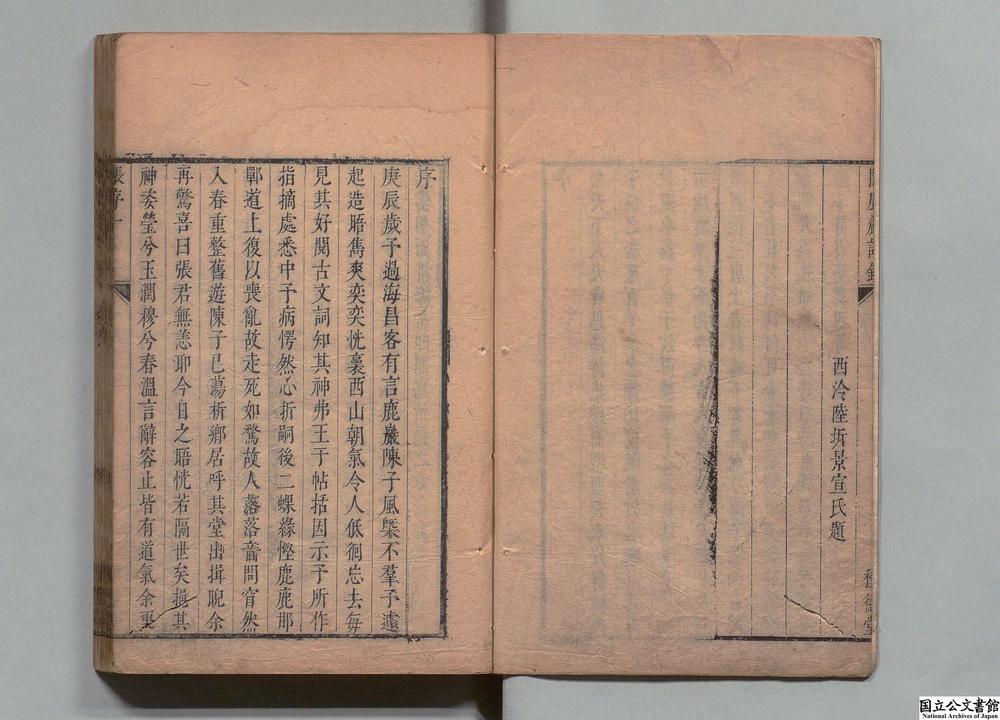 西泠陸圻景宣氏題
序
庚辰歲予過海昌客有言鹿巖陳子風槩不羣予遽
起造晤雋爽奕奕恍裹西山朝氣令人低徊忘去每
見其好閱古文詞知其神弗王于帖括因示予所作
指摘處悉中予病愕然心折嗣後二蜾緣慳鹿鹿邯
鄲道上復以喪亂故走死如騖故人落落音問窅然
入春重整舊遊陳子已蕩析鄉居呼其堂出揖睨余
再驚喜曰張君無恙耶今日之晤恍若隔世矣挹其
神姿瑩兮玉潤穆兮春溫言辭容止皆有道氣余
張序 一
国立公文書館
National Archives of Japan